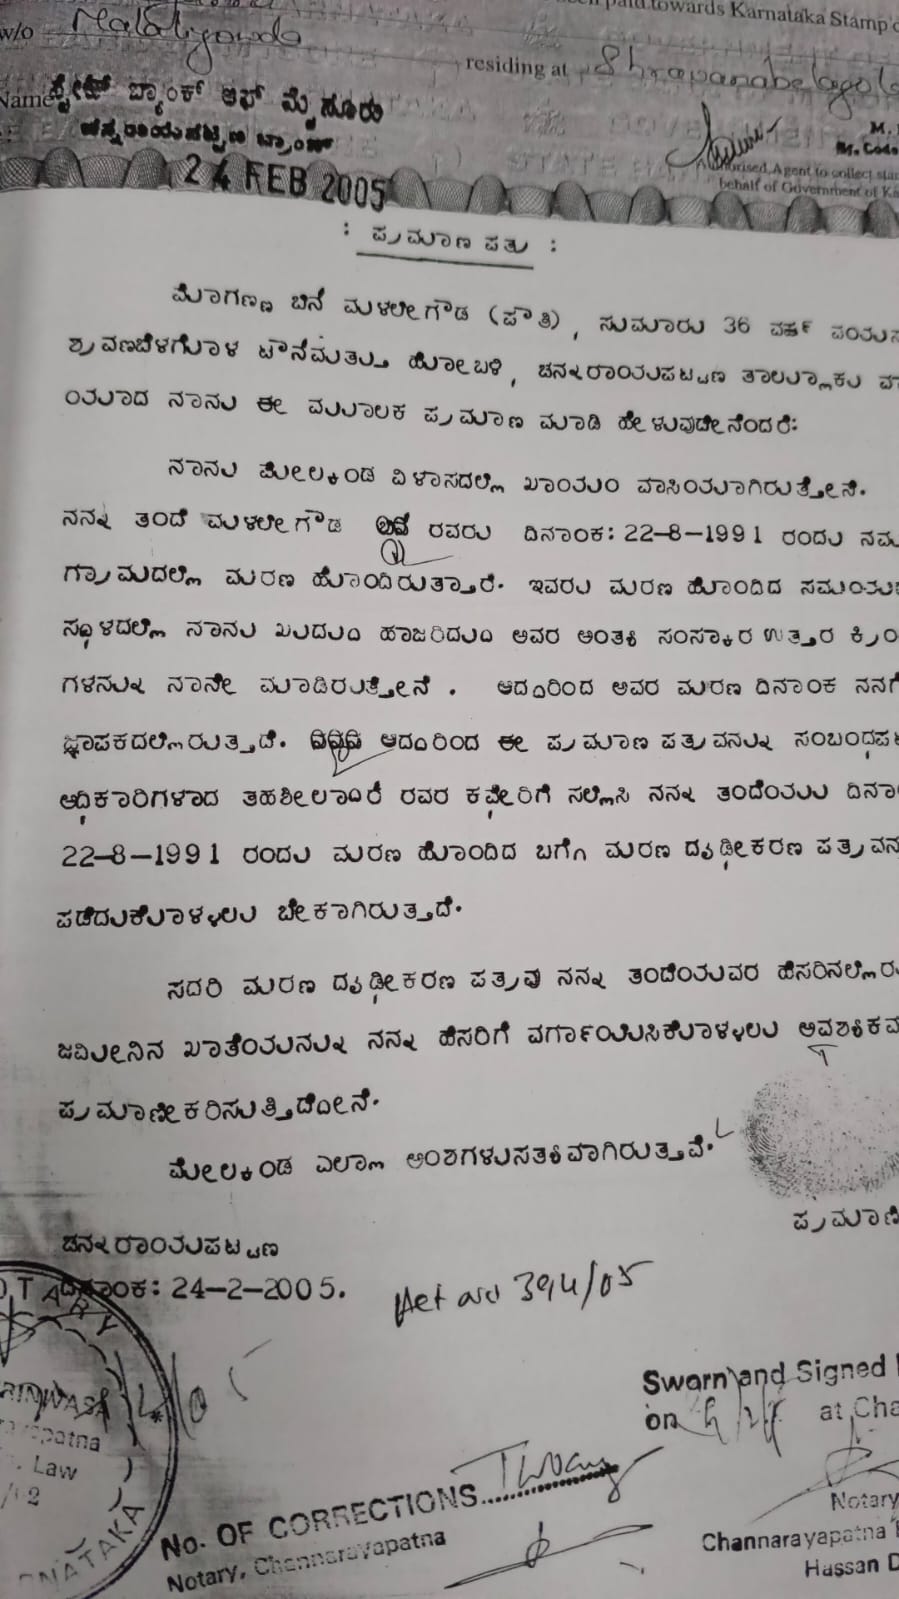 paid towards Karnataka Stamp
w/o Malaligowda
residing at Shravanabelagola
Name
ಸ್ಟೇಟ್ ಬ್ಯಾಂಕ್ ಆಫ್ ಮೈಸೂರು
ಚನ್ನರಾಯಪಟ್ಟಣ ಬ್ರಾಂಚ್
Authorised Agent to collect
behalf of Government of
24 FEB 2005
: ಪ್ರಮಾಣ ಪತ್ರ :
ಮೊಗಣ್ಣ ಬಿನ್ ಮಳಲೀಗೌಡ (ಪೌತಿ), ಸುಮಾರು 36 ವರ್ಷ
ಶ್ರವಣಬೆಳಗೊಳ ಟೌನ್ ಮತ್ತು ಹೋಬಳಿ, ಚನ್ನರಾಯಪಟ್ಟಣ ತಾಲ್ಲೂಕು
ಯಾದ ನಾನು ಈ ಮೂಲಕ ಪ್ರಮಾಣ ಮಾಡಿ ಹೇಳುವುದೇನೆಂದರೆ:
ನಾನು ಮೇಲ್ಕಂಡ ವಿಳಾಸದಲ್ಲಿ ಖಾಯಂ ವಾಸಿಯಾಗಿರುತ್ತೇನೆ.
ನನ್ನ ತಂದೆ ಮಳಲೀಗೌಡ ರವರು ದಿನಾಂಕ: 22-8-1991 ರಂದು ನಮ್ಮ
ಗ್ರಾಮದಲ್ಲಿ ಮರಣ ಹೊಂದಿರುತ್ತಾರೆ. ಇವರು ಮರಣ ಹೊಂದಿದ ಸಮಯ
ಸ್ಥಳದಲ್ಲಿ ನಾನು ಖುದ್ದು ಹಾಜರಿದ್ದು ಅವರ ಅಂತ್ಯ ಸಂಸ್ಕಾರ ಉತ್ತರ ಕ್ರಿಯೆ
ಗಳನ್ನು ನಾನೇ ಮಾಡಿರುತ್ತೇನೆ. ಆದ್ದರಿಂದ ಅವರ ಮರಣ ದಿನಾಂಕ ನನಗೆ
ಜ್ಞಾಪಕದಲ್ಲಿರುತ್ತದೆ. ಆದ್ದರಿಂದ ಈ ಪ್ರಮಾಣ ಪತ್ರವನ್ನು ಸಂಬಂಧಪಟ್ಟ
ಅಧಿಕಾರಿಗಳಾದ ತಹಶೀಲ್ದಾರ್ ರವರ ಕಛೇರಿಗೆ ಸಲ್ಲಿಸಿ ನನ್ನ ತಂದೆಯು ದಿನಾಂ
22-8-1991 ರಂದು ಮರಣ ಹೊಂದಿದ ಬಗ್ಗೆ ಮರಣ ದೃಢೀಕರಣ ಪತ್ರವನ್ನು
ಪಡೆದುಕೊಳ್ಳಲು ಬೇಕಾಗಿರುತ್ತದೆ.
ಸದರಿ ಮರಣ ದೃಢೀಕರಣ ಪತ್ರವು ನನ್ನ ತಂದೆಯವರ ಹೆಸರಿನಲ್ಲಿರುವ
ಜಮೀನಿನ ಖಾತೆಯನ್ನು ನನ್ನ ಹೆಸರಿಗೆ ವರ್ಗಾಯಿಸಿಕೊಳ್ಳಲು ಅವಶ್ಯಕವೆಂ
ಪ್ರಮಾಣೀಕರಿಸುತ್ತಿದ್ದೇನೆ.
ಮೇಲ್ಕಂಡ ಎಲ್ಲಾ ಅಂಶಗಳು ಸತ್ಯವಾಗಿರುತ್ತವೆ.
ಪ್ರಮಾಣಿ
ಚನ್ನರಾಯಪಟ್ಟಣ
ದಿನಾಂಕ: 24-2-2005.
NOTARY
Law
Sworn and Signed
on
at Cha
No. OF CORRECTIONS
Notary, Channarayapatna
Notary
Channarayapatna
Hassan D